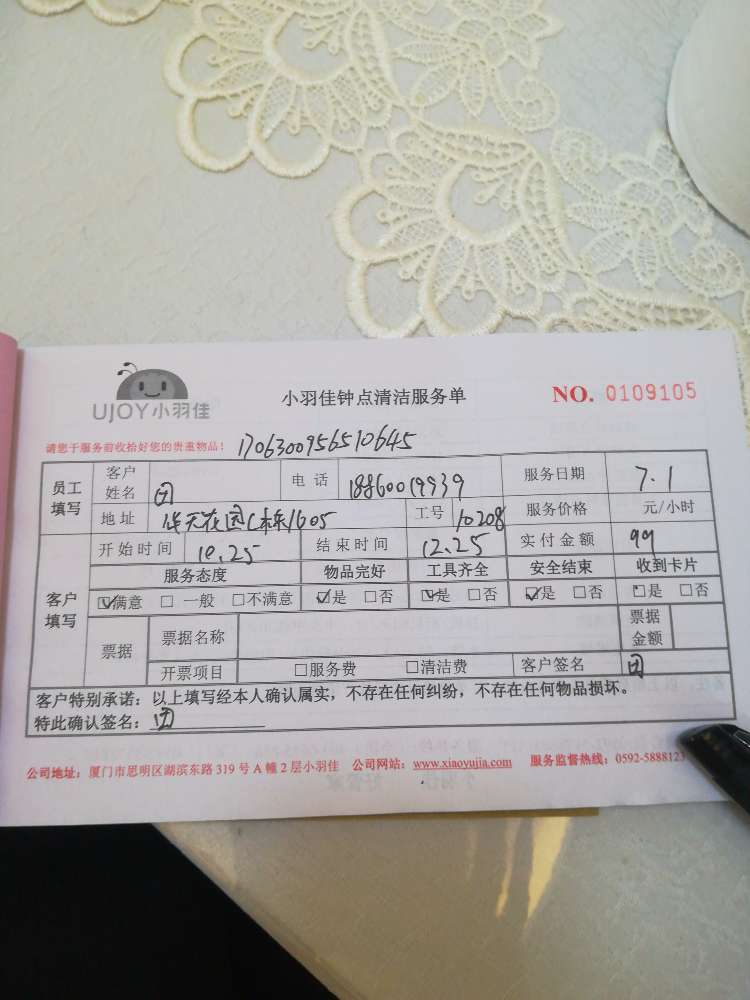 UJOY小羽佳
小羽佳钟点清洁服务单
NO. 0109105
请您于服务前收拾好您的贵重物品！
170630095651 0645
员工填写 客户姓名 团 电话 18860019939 服务日期 7.1
地址 华天花园C栋1605 工号 10208 服务价格 元/小时
客户填写 开始时间 10.25 结束时间 12.25 实付金额 99
服务态度 物品完好 工具齐全 安全结束 收到卡片
☑满意 □一般 □不满意 ☑是 □否 ☑是 □否 ☑是 □否 ☑是 □否
票据 票据名称 票据金额
开票项目 □服务费 □清洁费 客户签名 团
客户特别承诺：以上填写经本人确认属实，不存在任何纠纷，不存在任何物品损坏。
特此确认签名：团
公司地址：厦门市思明区湖滨东路319号A幢2层小羽佳 公司网站：www.xiaoyujia.com 服务监督热线：0592-5888123